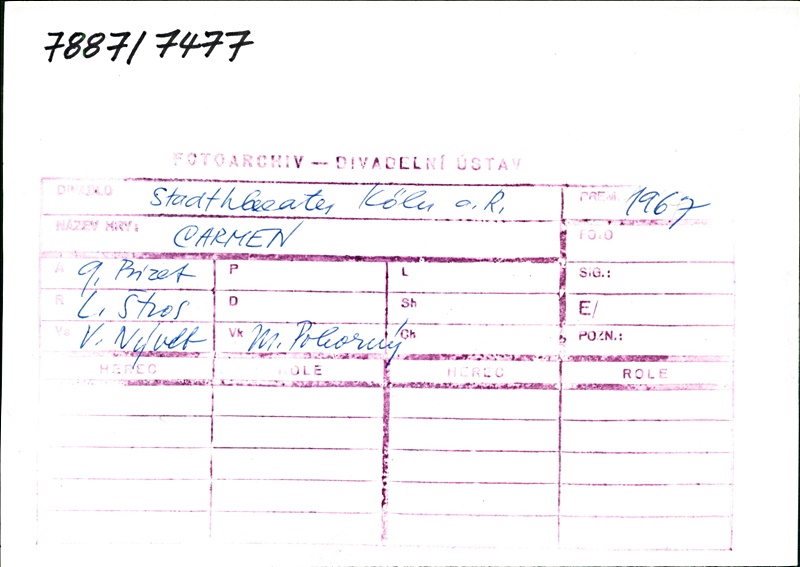 7887/7477
FOTOARCHIV — DIVADELNÍ ÚSTAV
DIVADLO Stadttheater Köln a.R. PREM. 1967
NÁZEV HRY: CARMEN FOTO
A G. Bizet P L SIG.:
R L. Štros D Sh E/
V. Nývlt Vk M. Pokorný Ch POZN.:
HEREC ROLE HEREC ROLE